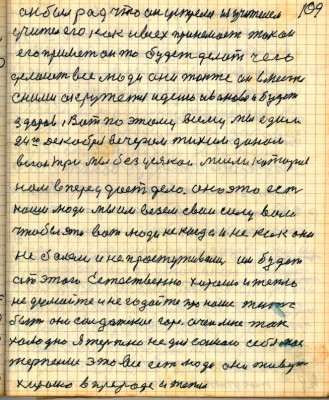 109
он был рад что он учителем
учить его как и всех принимает также
его примет он то будет делать чего
делают все люди они тоже он вместе
с ними окружён идеи иванова и будет
здоров, Вот по этому всему мы едим
24го декабря вечером тихим данам
мы без всякой мысли которая
нам вперед дает дело. оно это есть
наши люди мы им везем свои силы воли
чтобы это вот люди некогда и не как они
не болели и не простуживали им будет
от этого Естественно хорошо и тепло
не думайте и не гадайте про наше
быть они солдатское горе. очень мне так
холодно Я терплю не для самого себя мое
терпение это все есть люди они живут
хорошо в природе и тепло